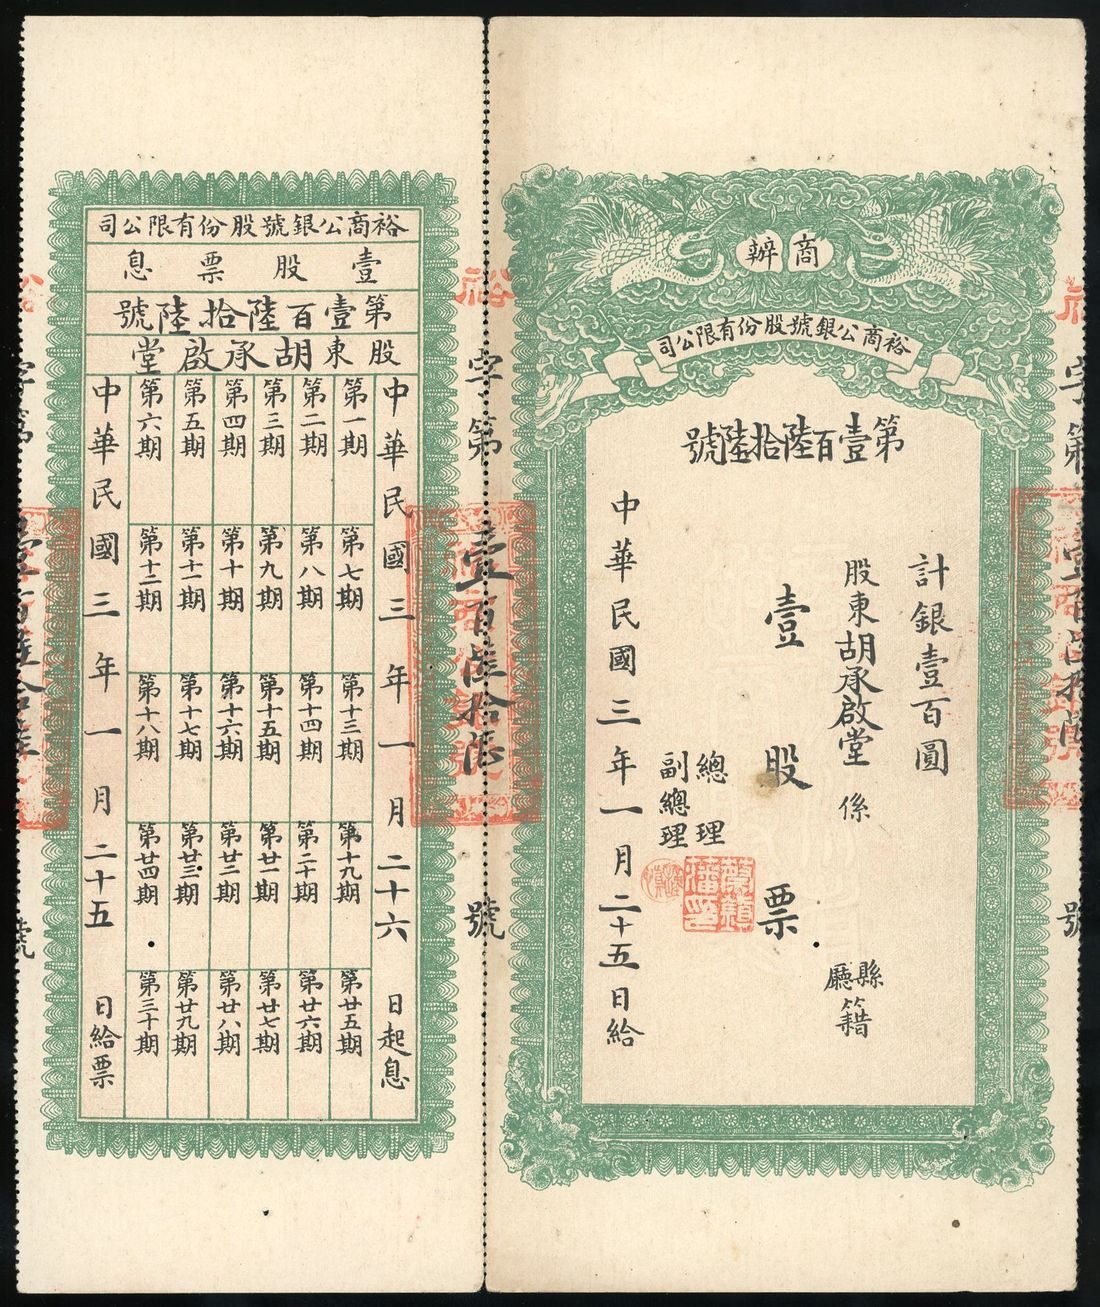 商辦
裕商公銀號股份有限公司
第壹百陸拾陸號
計銀壹百圓
股東胡承啟堂 係 縣廳籍
壹股票
總理
副總理
中華民國三年一月二十五日給
裕
字第壹百陸拾陸號
裕商公銀號股份有限公司
壹股票息
第壹百陸拾陸號
股東胡承啟堂
中華民國三年一月二十六日起息
第一期 第二期 第三期 第四期 第五期 第六期
第七期 第八期 第九期 第十期 第十一期 第十二期
第十三期 第十四期 第十五期 第十六期 第十七期 第十八期
第十九期 第二十期 第廿一期 第廿二期 第廿三期 第廿四期
第廿五期 第廿六期 第廿七期 第廿八期 第廿九期 第三十期
中華民國三年一月二十五日給票